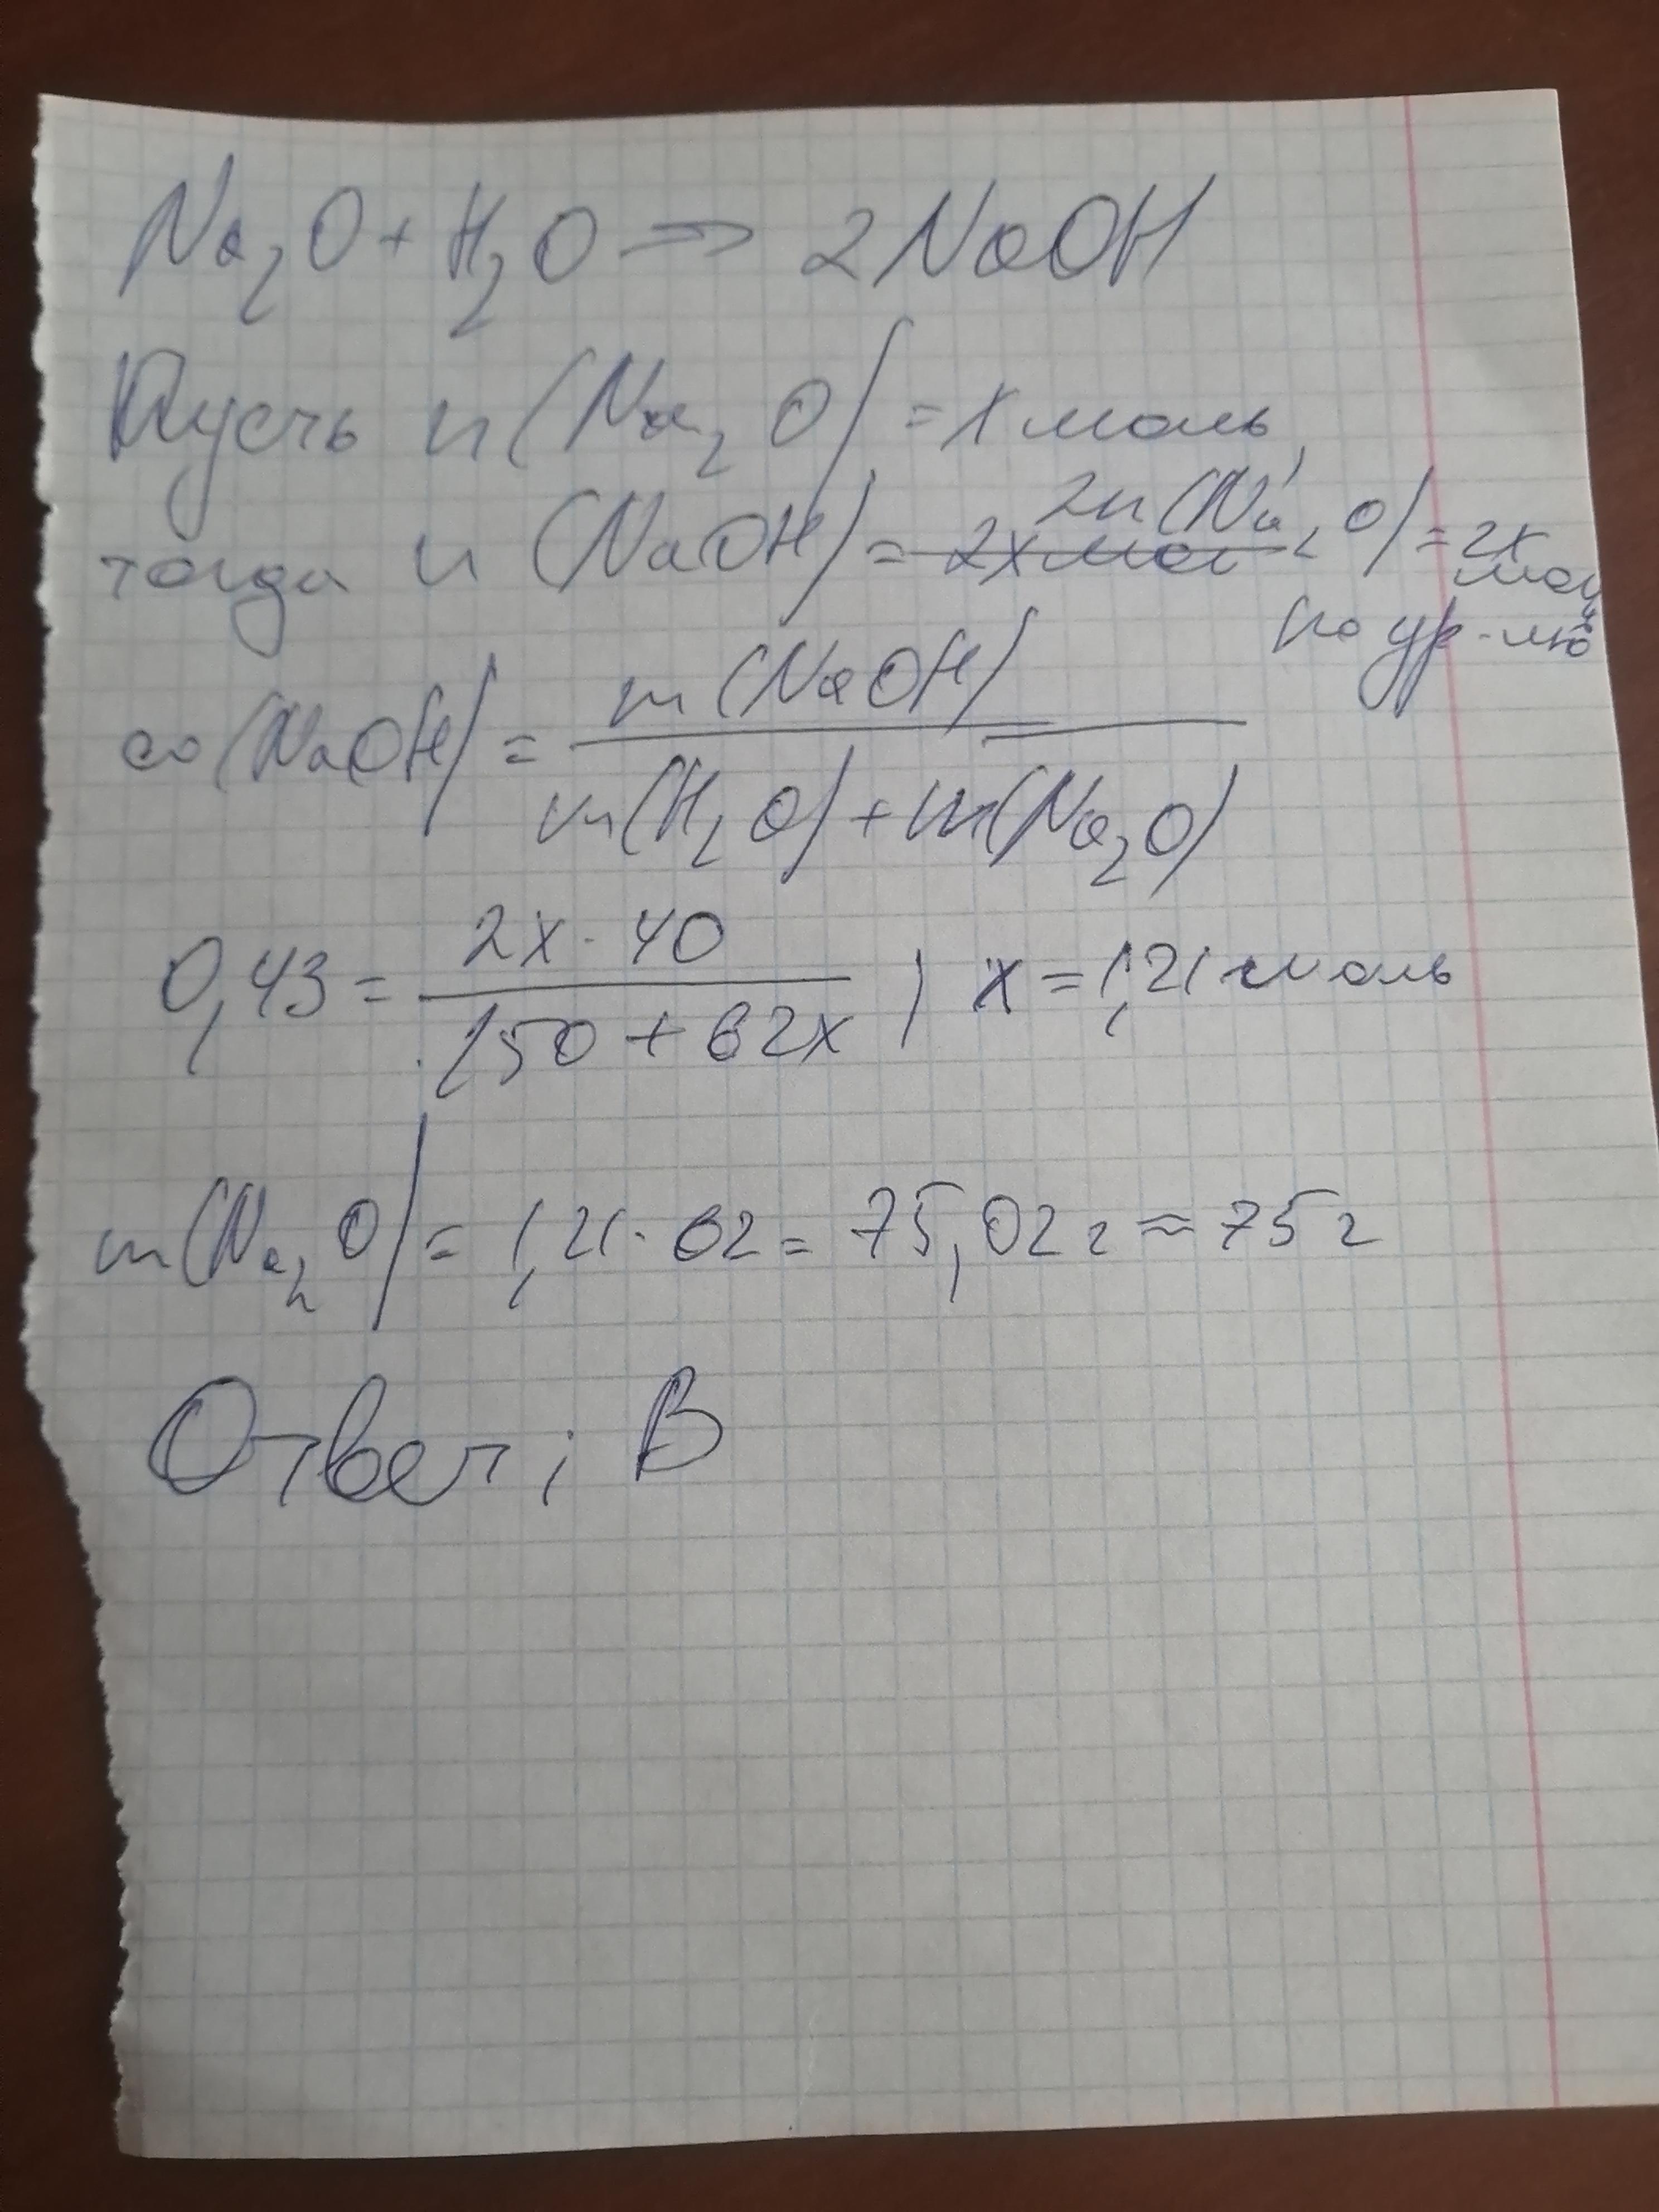 Na₂O + H₂O => 2NaOH
Пусть n(Na₂O) = x моль,
тогда n(NaOH) = 2n(Na₂O) = 2x моль
по ур-ию
ω(NaOH) = m(NaOH) / m(H₂O) + m(Na₂O)
0,43 = 2x · 40 / 150 + 62x | x = 1,21 моль
m(Na₂O) = 1,21 · 62 = 75,02 г ≈ 75 г
Ответ: В